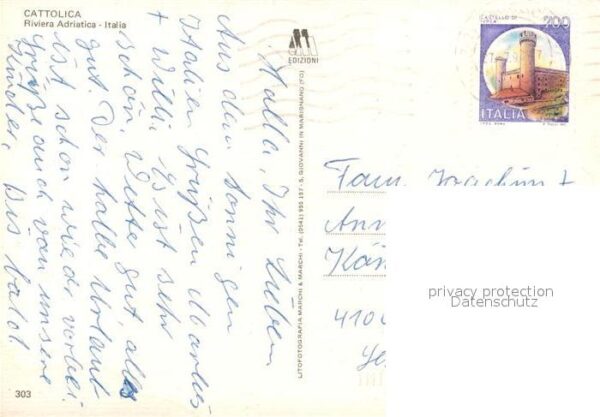 CATTOLICA
Riviera Adriatica - Italia
Hallo, Ihr Lieben
Aus dem sonnigen
Italien grüßen Marlis
+ Willi. Es ist sehr
schön, Wetter gut, alles
gut. Der halbe Urlaub
ist schon wieder vorbei.
Grüße auch von unsere
Kinder. Bis bald.
303
EDIZIONI
LITOFOTOGRAFIA MARCHI & MARCHI - Tel. (0541) 955 157 - S. GIOVANNI IN MARIGNANO (FO)
CASTELLO DI
IVREA
200
ITALIA
Fam. Joachim +
Ann
Kän
410
privacy protection
Datenschutz